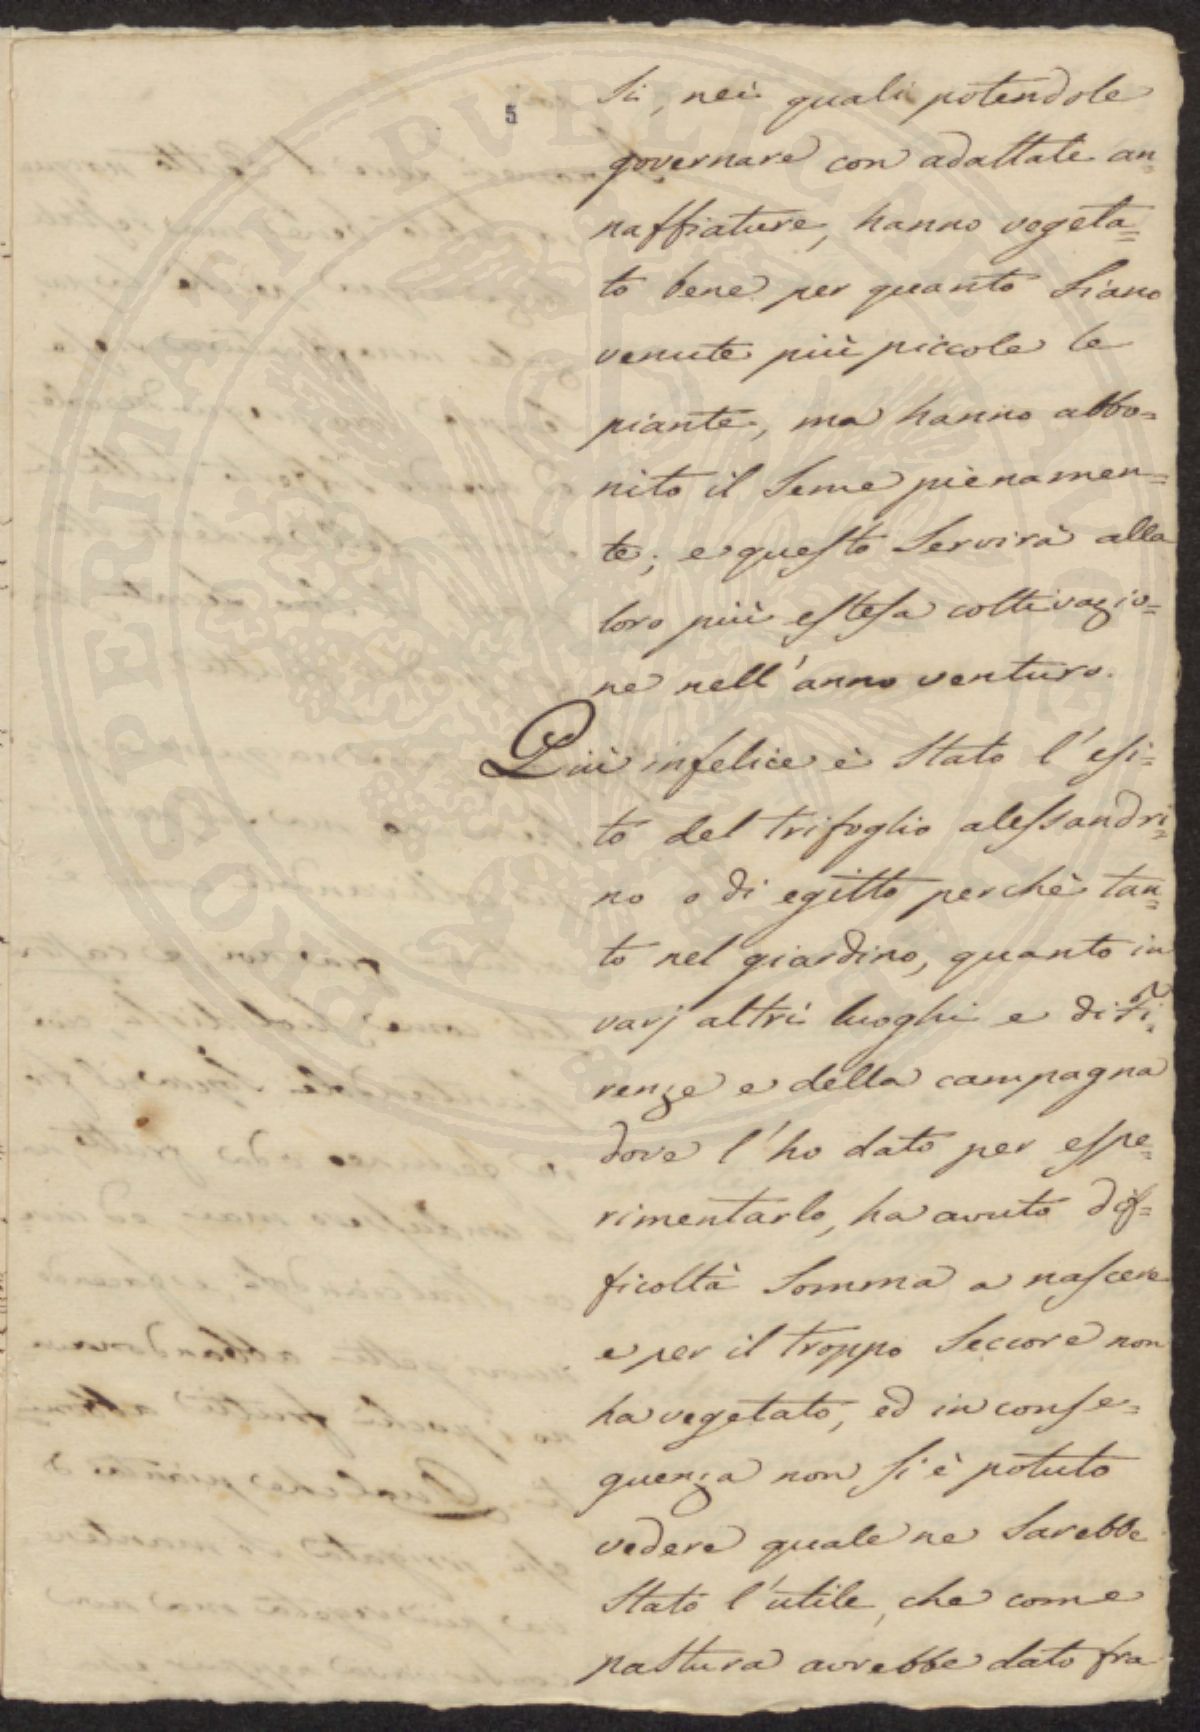 5
si, nei quali potendole
governare con adattate an=
naffiature, hanno vegeta=
to bene per quanto siano
venute più piccole le
piante, ma hanno abbo=
nito il seme pienamen=
te; e questo servirà alla
loro più estesa coltivazio=
ne nell'anno venturo.
Più infelice è stato l'esi=
to del trifoglio alessandri=
no o di egitto perchè tan=
to nel giardino, quanto in
varj altri luoghi e di Fi=
renze e della campagna
dove l'ho dato per espe=
rimentarlo, ha avuto dif=
ficoltà somma a nascere
e per il troppo seccore non
ha vegetato, ed in conse=
guenza non si è potuto
vedere quale ne sarebbe
stato l'utile, che come
pastura avrebbe dato fra
PROSPERITATI PUBLICAE AUGENDAE